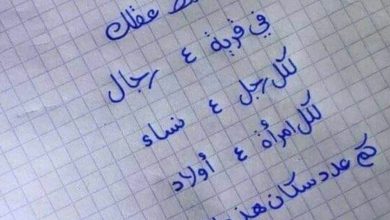 عقلك
في قرية ٤ رجال
لكل رجل ٤ نساء
لكل امرأة ٤ أولاد
كم عدد سكان